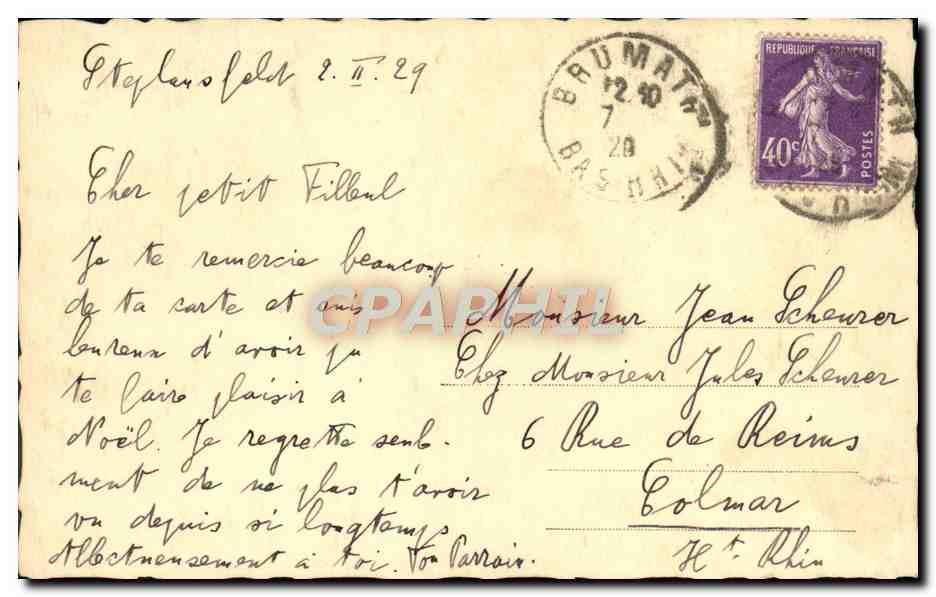 Stephansfeld 2.II.29
Cher petit Filleul
Je te remercie beaucoup
de ta carte et suis
heureux d'avoir pu
te faire plaisir à
Noël. Je regrette seule-
ment de ne plus t'avoir
vu depuis si longtemps
Affectueusement à toi. Ton Parrain.
BRUMATH
12.10
7
29
BAS RHIN
REPUBLIQUE FRANÇAISE
40c
POSTES
CPAPHIL
Monsieur Jean Scheurer
Chez Monsieur Jules Scheurer
6 Rue de Reims
Colmar
Ht Rhin